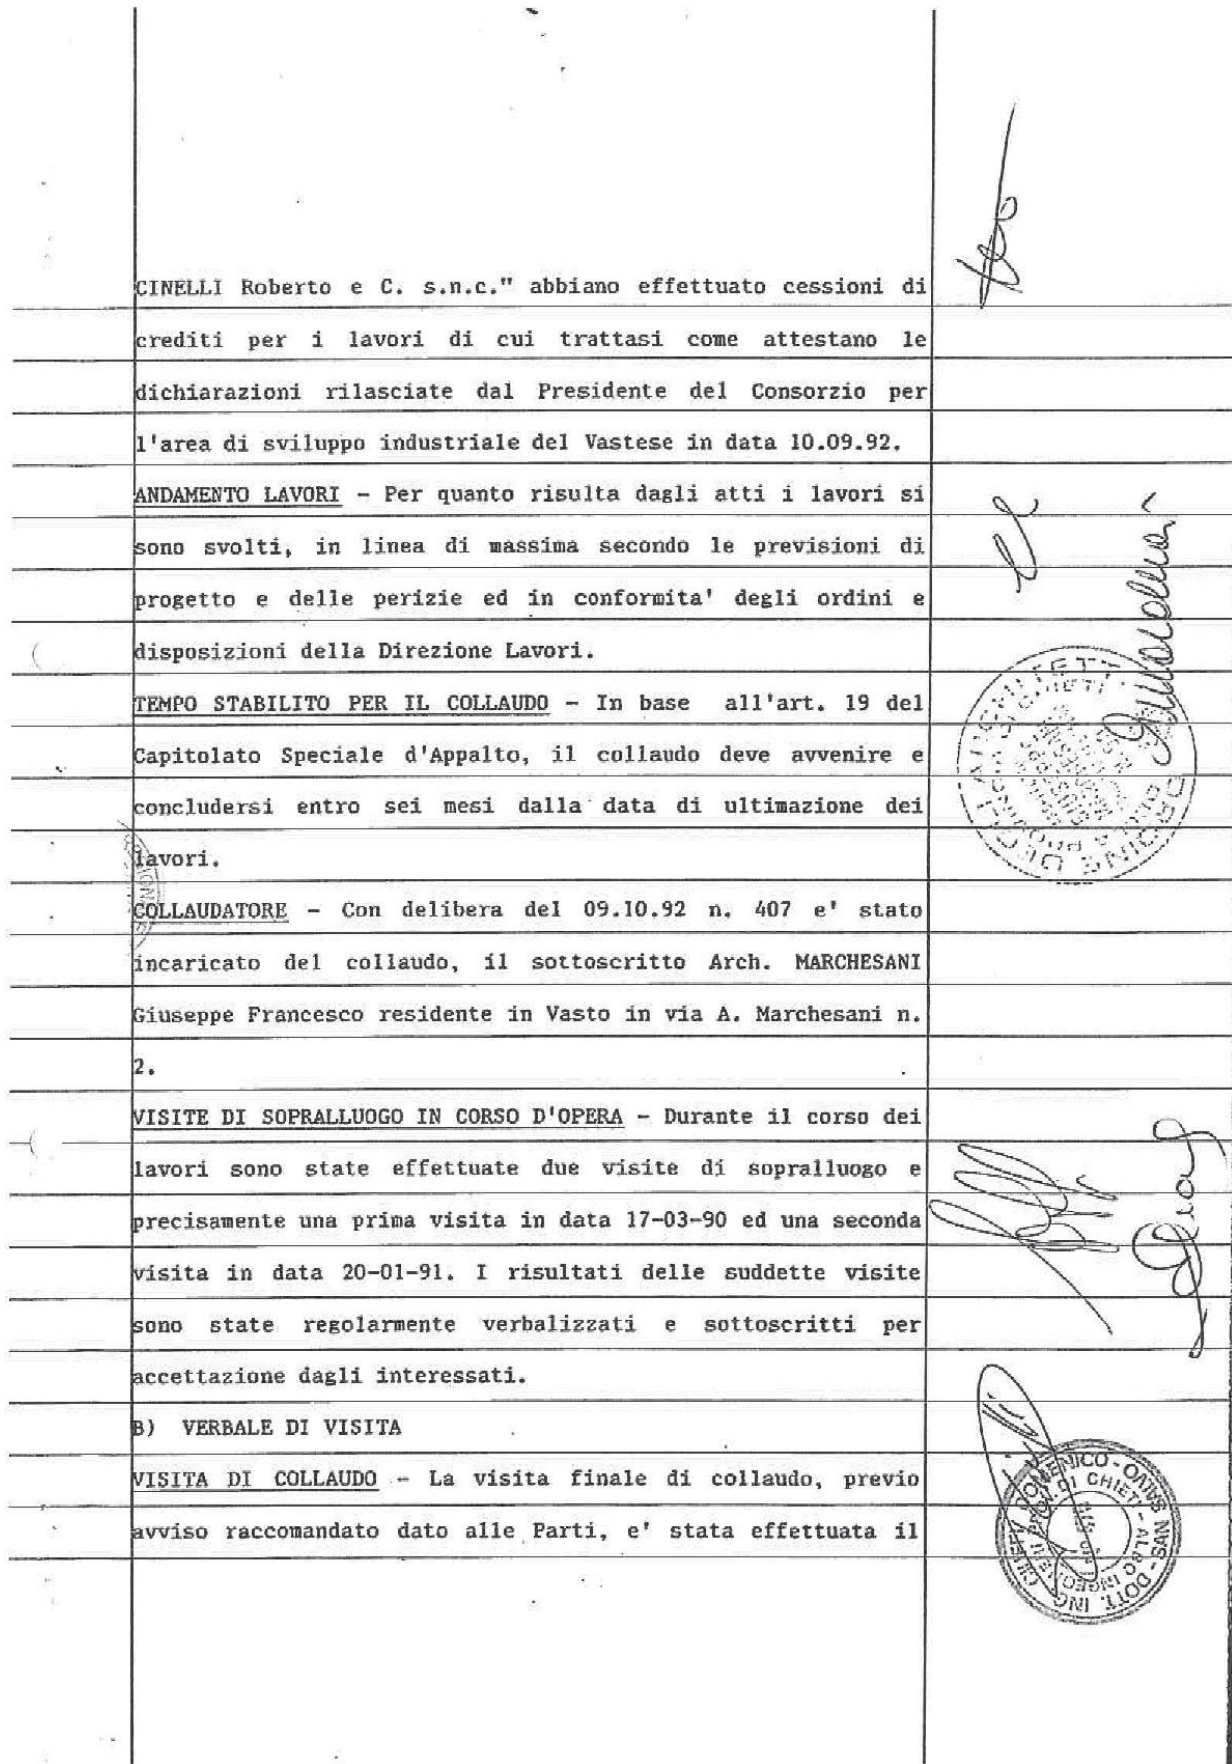 CINELLI Roberto e C. s.n.c." abbiano effettuato cessioni di
crediti per i lavori di cui trattasi come attestano le
dichiarazioni rilasciate dal Presidente del Consorzio per
l'area di sviluppo industriale del Vastese in data 10.09.92.
ANDAMENTO LAVORI - Per quanto risulta dagli atti i lavori si
sono svolti, in linea di massima secondo le previsioni di
progetto e delle perizie ed in conformita' degli ordini e
disposizioni della Direzione Lavori.
TEMPO STABILITO PER IL COLLAUDO - In base all'art. 19 del
Capitolato Speciale d'Appalto, il collaudo deve avvenire e
concludersi entro sei mesi dalla data di ultimazione dei
lavori.
COLLAUDATORE - Con delibera del 09.10.92 n. 407 e' stato
incaricato del collaudo, il sottoscritto Arch. MARCHESANI
Giuseppe Francesco residente in Vasto in via A. Marchesani n.
2.
VISITE DI SOPRALLUOGO IN CORSO D'OPERA - Durante il corso dei
lavori sono state effettuate due visite di sopralluogo e
precisamente una prima visita in data 17-03-90 ed una seconda
visita in data 20-01-91. I risultati delle suddette visite
sono state regolarmente verbalizzati e sottoscritti per
accettazione dagli interessati.
B) VERBALE DI VISITA
VISITA DI COLLAUDO - La visita finale di collaudo, previo
avviso raccomandato dato alle Parti, e' stata effettuata il
DOTT. ING.
DOMENICO - SAN SALVO
DI CHIETI - ALBO INGEGNERI